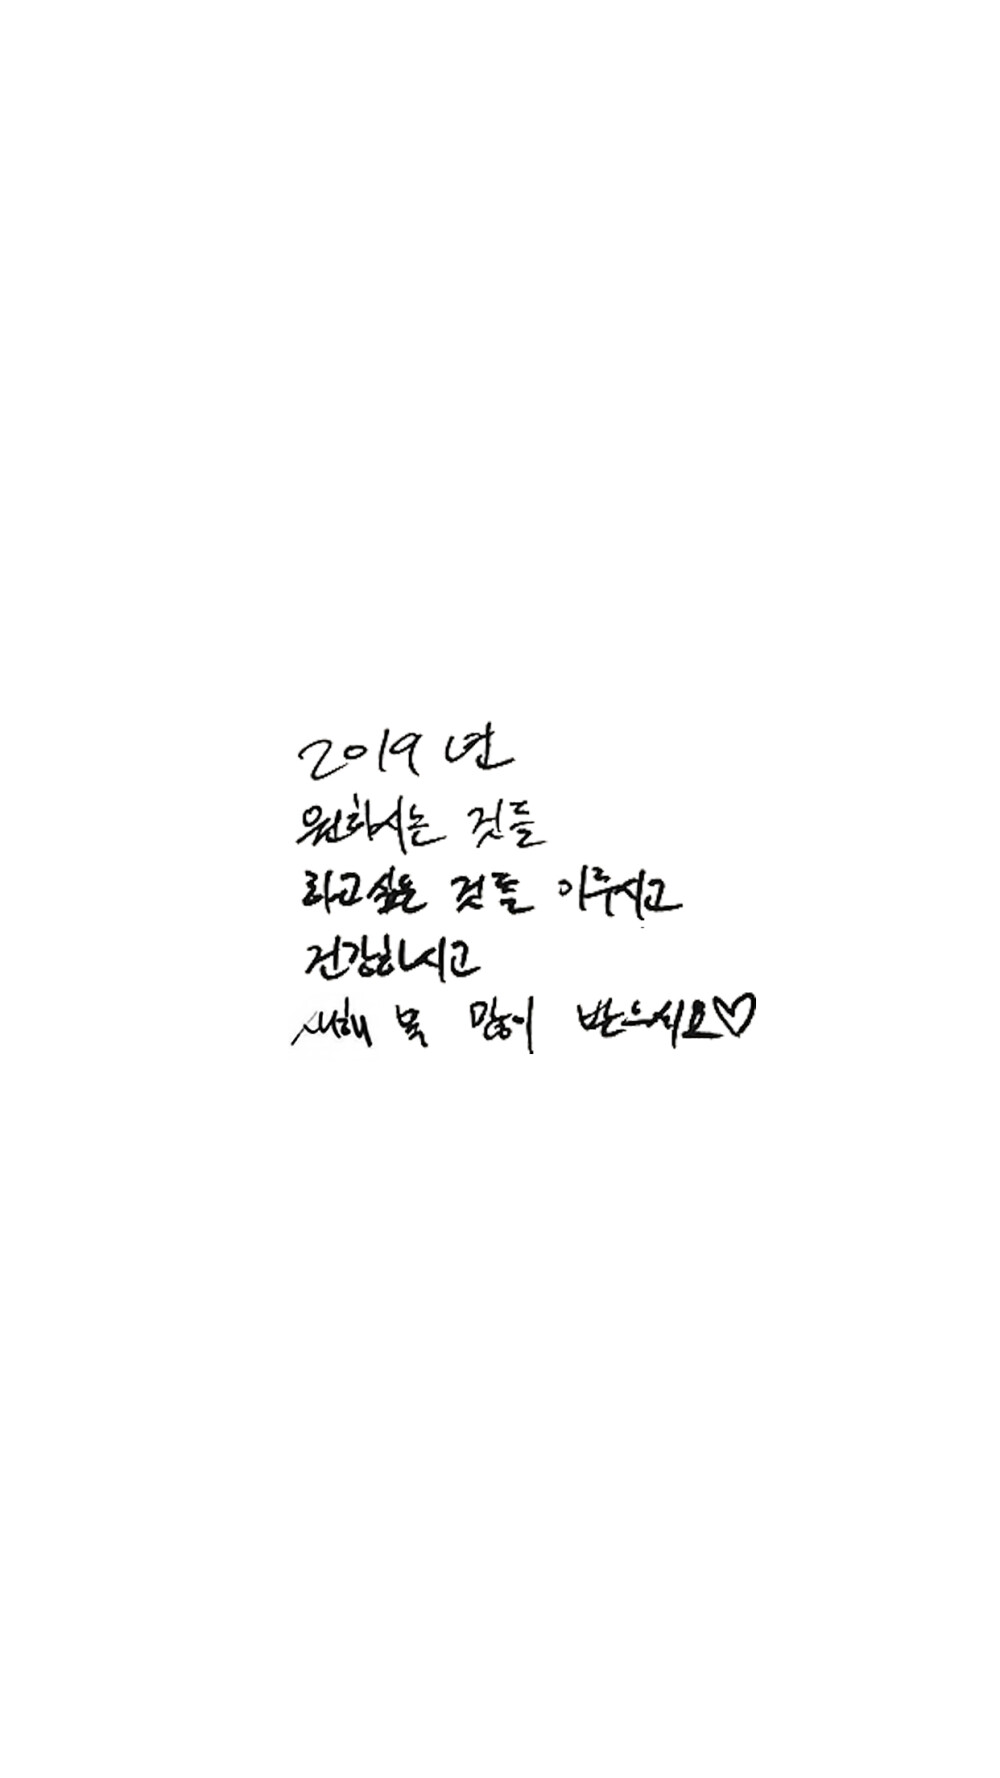 2019년
원하시는 것들
하고싶은 것들 이루시고
건강하시고
새해 복 많이 받으시요♡